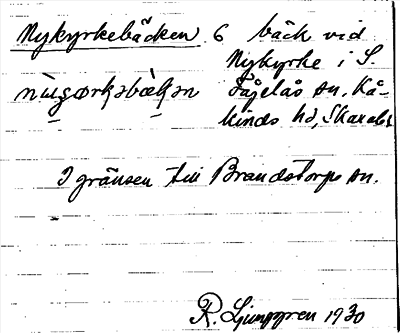 Nykyrkebäcken 6 bäck vid
Nykyrke i S.
Fågelås sn, Kå-
kinds hd, Skarabs
I gränsen till Brandstorps sn.
R. Ljunggren 1930